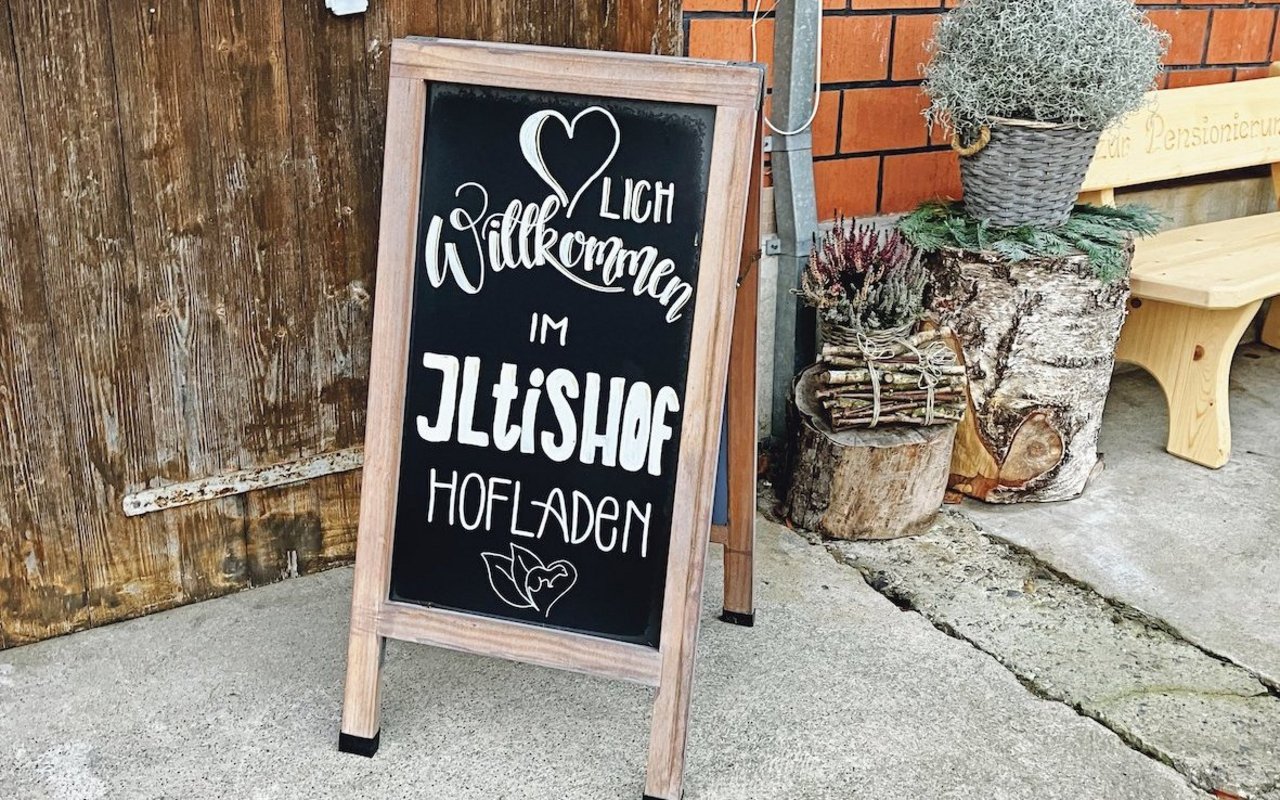 LICH
Willkommen
IM
ILtiSHOF
HOFLADEN
Zur Pensionierung